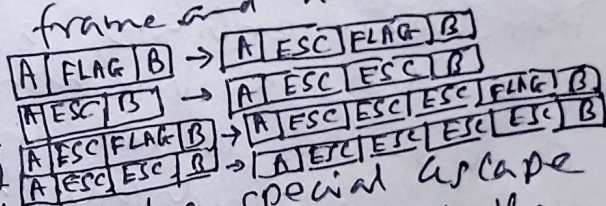 frame and
A | FLAG | B → A | ESC | FLAG | B
A | ESC | B → A | ESC | ESC | B
A | ESC | FLAG | B → A | ESC | ESC | ESC | FLAG | B
A | ESC | ESC | B → A | ESC | ESC | ESC | ESC | B
special ascape